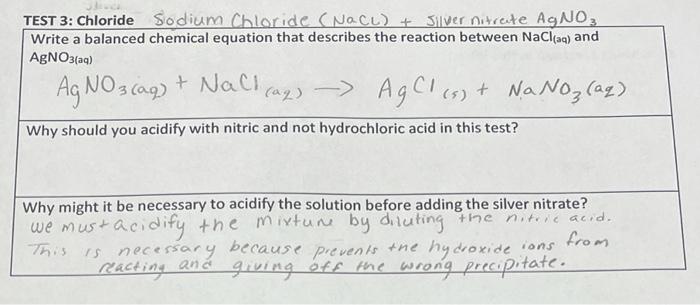 TEST 3: Chloride Sodium Chloride (NaCl) + Silver nitrate AgNO3
Write a balanced chemical equation that describes the reaction between NaCl(aq) and
AgNO3(aq)
AgNO3(aq) + NaCl(aq) → AgCl(s) + NaNO3(aq)
Why should you acidify with nitric and not hydrochloric acid in this test?
Why might it be necessary to acidify the solution before adding the silver nitrate?
we must acidify the mixture by diluting the nitric acid.
This is necessary because prevents the hydroxide ions from
reacting and giving off the wrong precipitate.